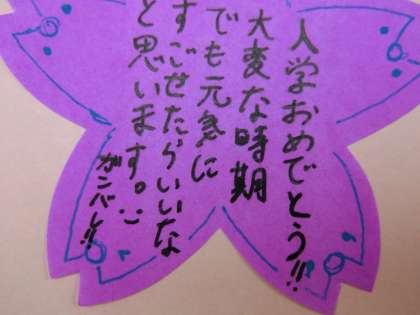 入学おめでとう!!
大変な時期
でも元気に
すごせたらいいな
と思います。
ガンバレ!!